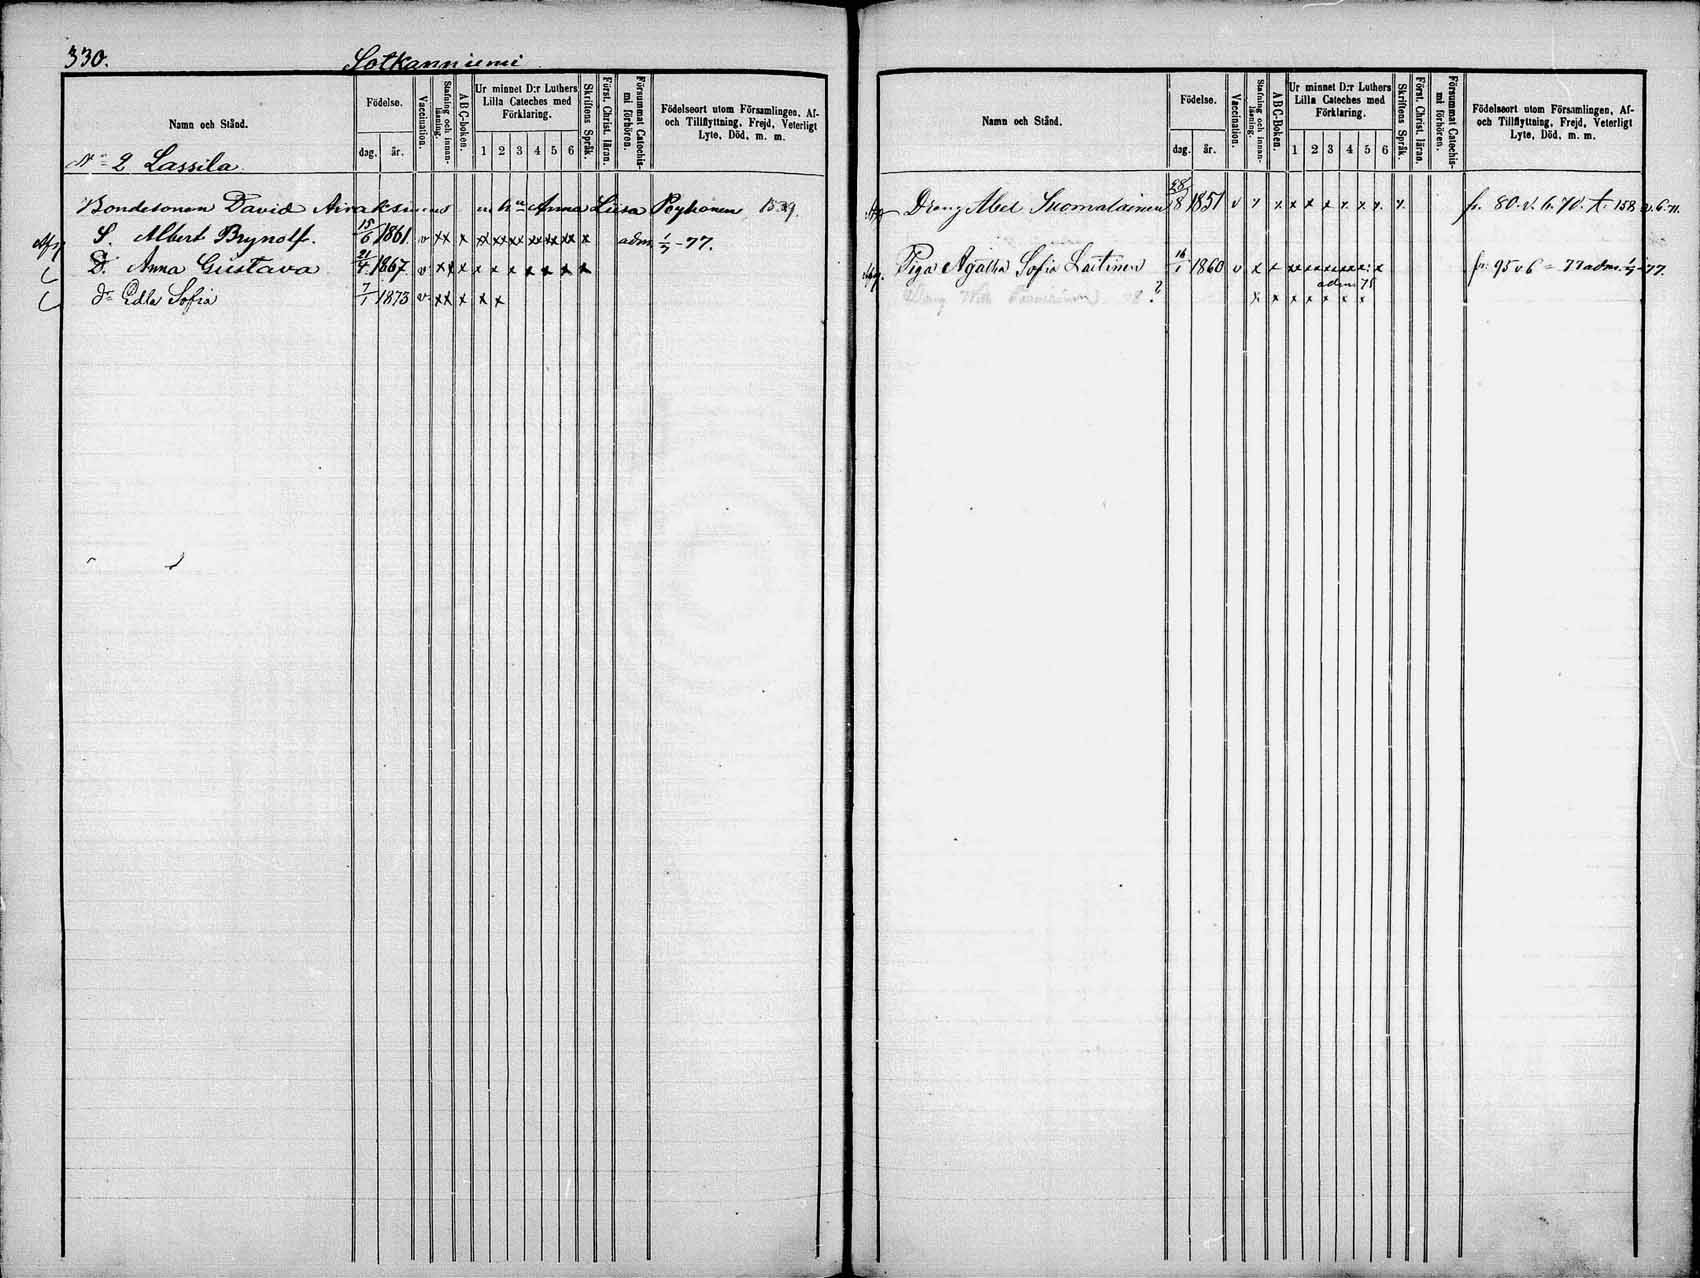 330. Sotkanniemi
Namn och Stånd.
Födelse.
dag. år.
Vaccination.
Stafning och innan-läsning.
A B C-boken.
Ur minnet D:r Luthers
Lilla Cateches med
Förklaring.
1 2 3 4 5 6
Skriftens Språk.
Först. Christ. läran.
Försummat Catechis-mi förhören.
Födelseort utom Församlingen, Af-
och Tillflyttning, Frejd, Veterligt
Lyte, Död, m. m.
N:o 2 Lassila.
Bondesonen David Airaksinens hu Anna Liisa Poyhönen
S. Albert Brynolf. 15/6 1861. v xx x xx xx xx xx xx x adm. 1/7-77.
D. Anna Gustava 21/4 1867. v xx x x x x x x x x
d:o Edla Sofia 7/1 1873 v xx x x x
Namn och Stånd.
Födelse.
dag. år.
Vaccination.
Stafning och innan-läsning.
A B C-Boken.
Ur minnet D:r Luthers
Lilla Cateches med
Förklaring.
1 2 3 4 5 6
Skriftens Språk.
Först. Christ. läran.
Försummat Catechis-mi förhören.
Födelseort utom Församlingen, Af-
och Tillflyttning, Frejd, Veterligt
Lyte, Död, m. m.
Dräng Abel Suomalainen 28/8 1851 v x x x x x x x x x fr. 80. v. 6. 70. t. 158 v. 6. 71.
Piga Agatha Sofia Laitinen 16/1 1860 v x x xx xx xx x x x fr. 95 v 6 = 77 adm. 1/7-77.
adm 75
? x x x x x x x